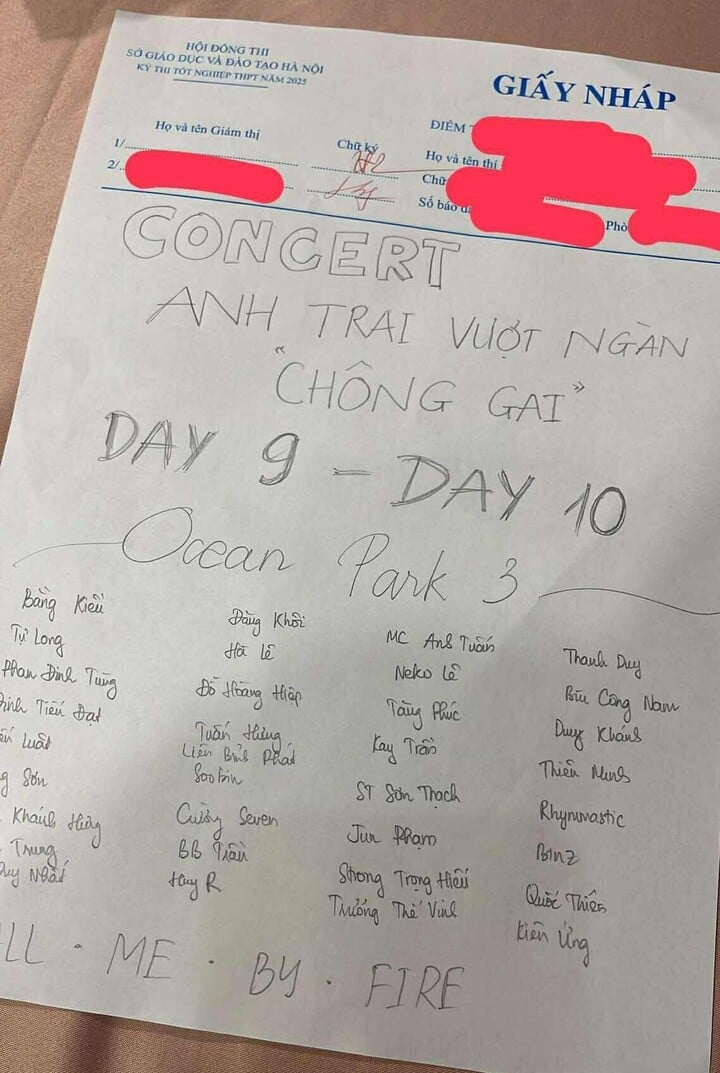 HỘI ĐỒNG THI
SỞ GIÁO DỤC VÀ ĐÀO TẠO HÀ NỘI
KỲ THI TỐT NGHIỆP THPT NĂM 2025
GIẤY NHÁP
Họ và tên Giám thị
Chữ ký
1/
2/
ĐIỂM
Họ và tên thí
Chữ
Số báo
Phò
CONCERT
ANH TRAI VƯỢT NGÀN
"CHÔNG GAI"
DAY 9 - DAY 10
Ocean Park 3
Bằng Kiều
Tự Long
Phan Đinh Tùng
Đinh Tiến Đạt
Luật
Sơn
Khánh Hưng
Trung
Duy Nhất
Đăng Khôi
Hà Lê
Đỗ Hoàng Hiệp
Tuấn Hưng
Liên Bỉnh Phát
Soobin
Cường Seven
BB Trần
Huy R
MC Anh Tuấn
Neko Lê
Tăng Phúc
Kay Trần
ST Sơn Thạch
Jun Phạm
Strong Trọng Hiếu
Trương Thế Vinh
Thanh Duy
Bùi Công Nam
Duy Khánh
Thiên Minh
Rhymastic
Binz
Quốc Thiên
Kiên Ứng
LL . ME . BY . FIRE